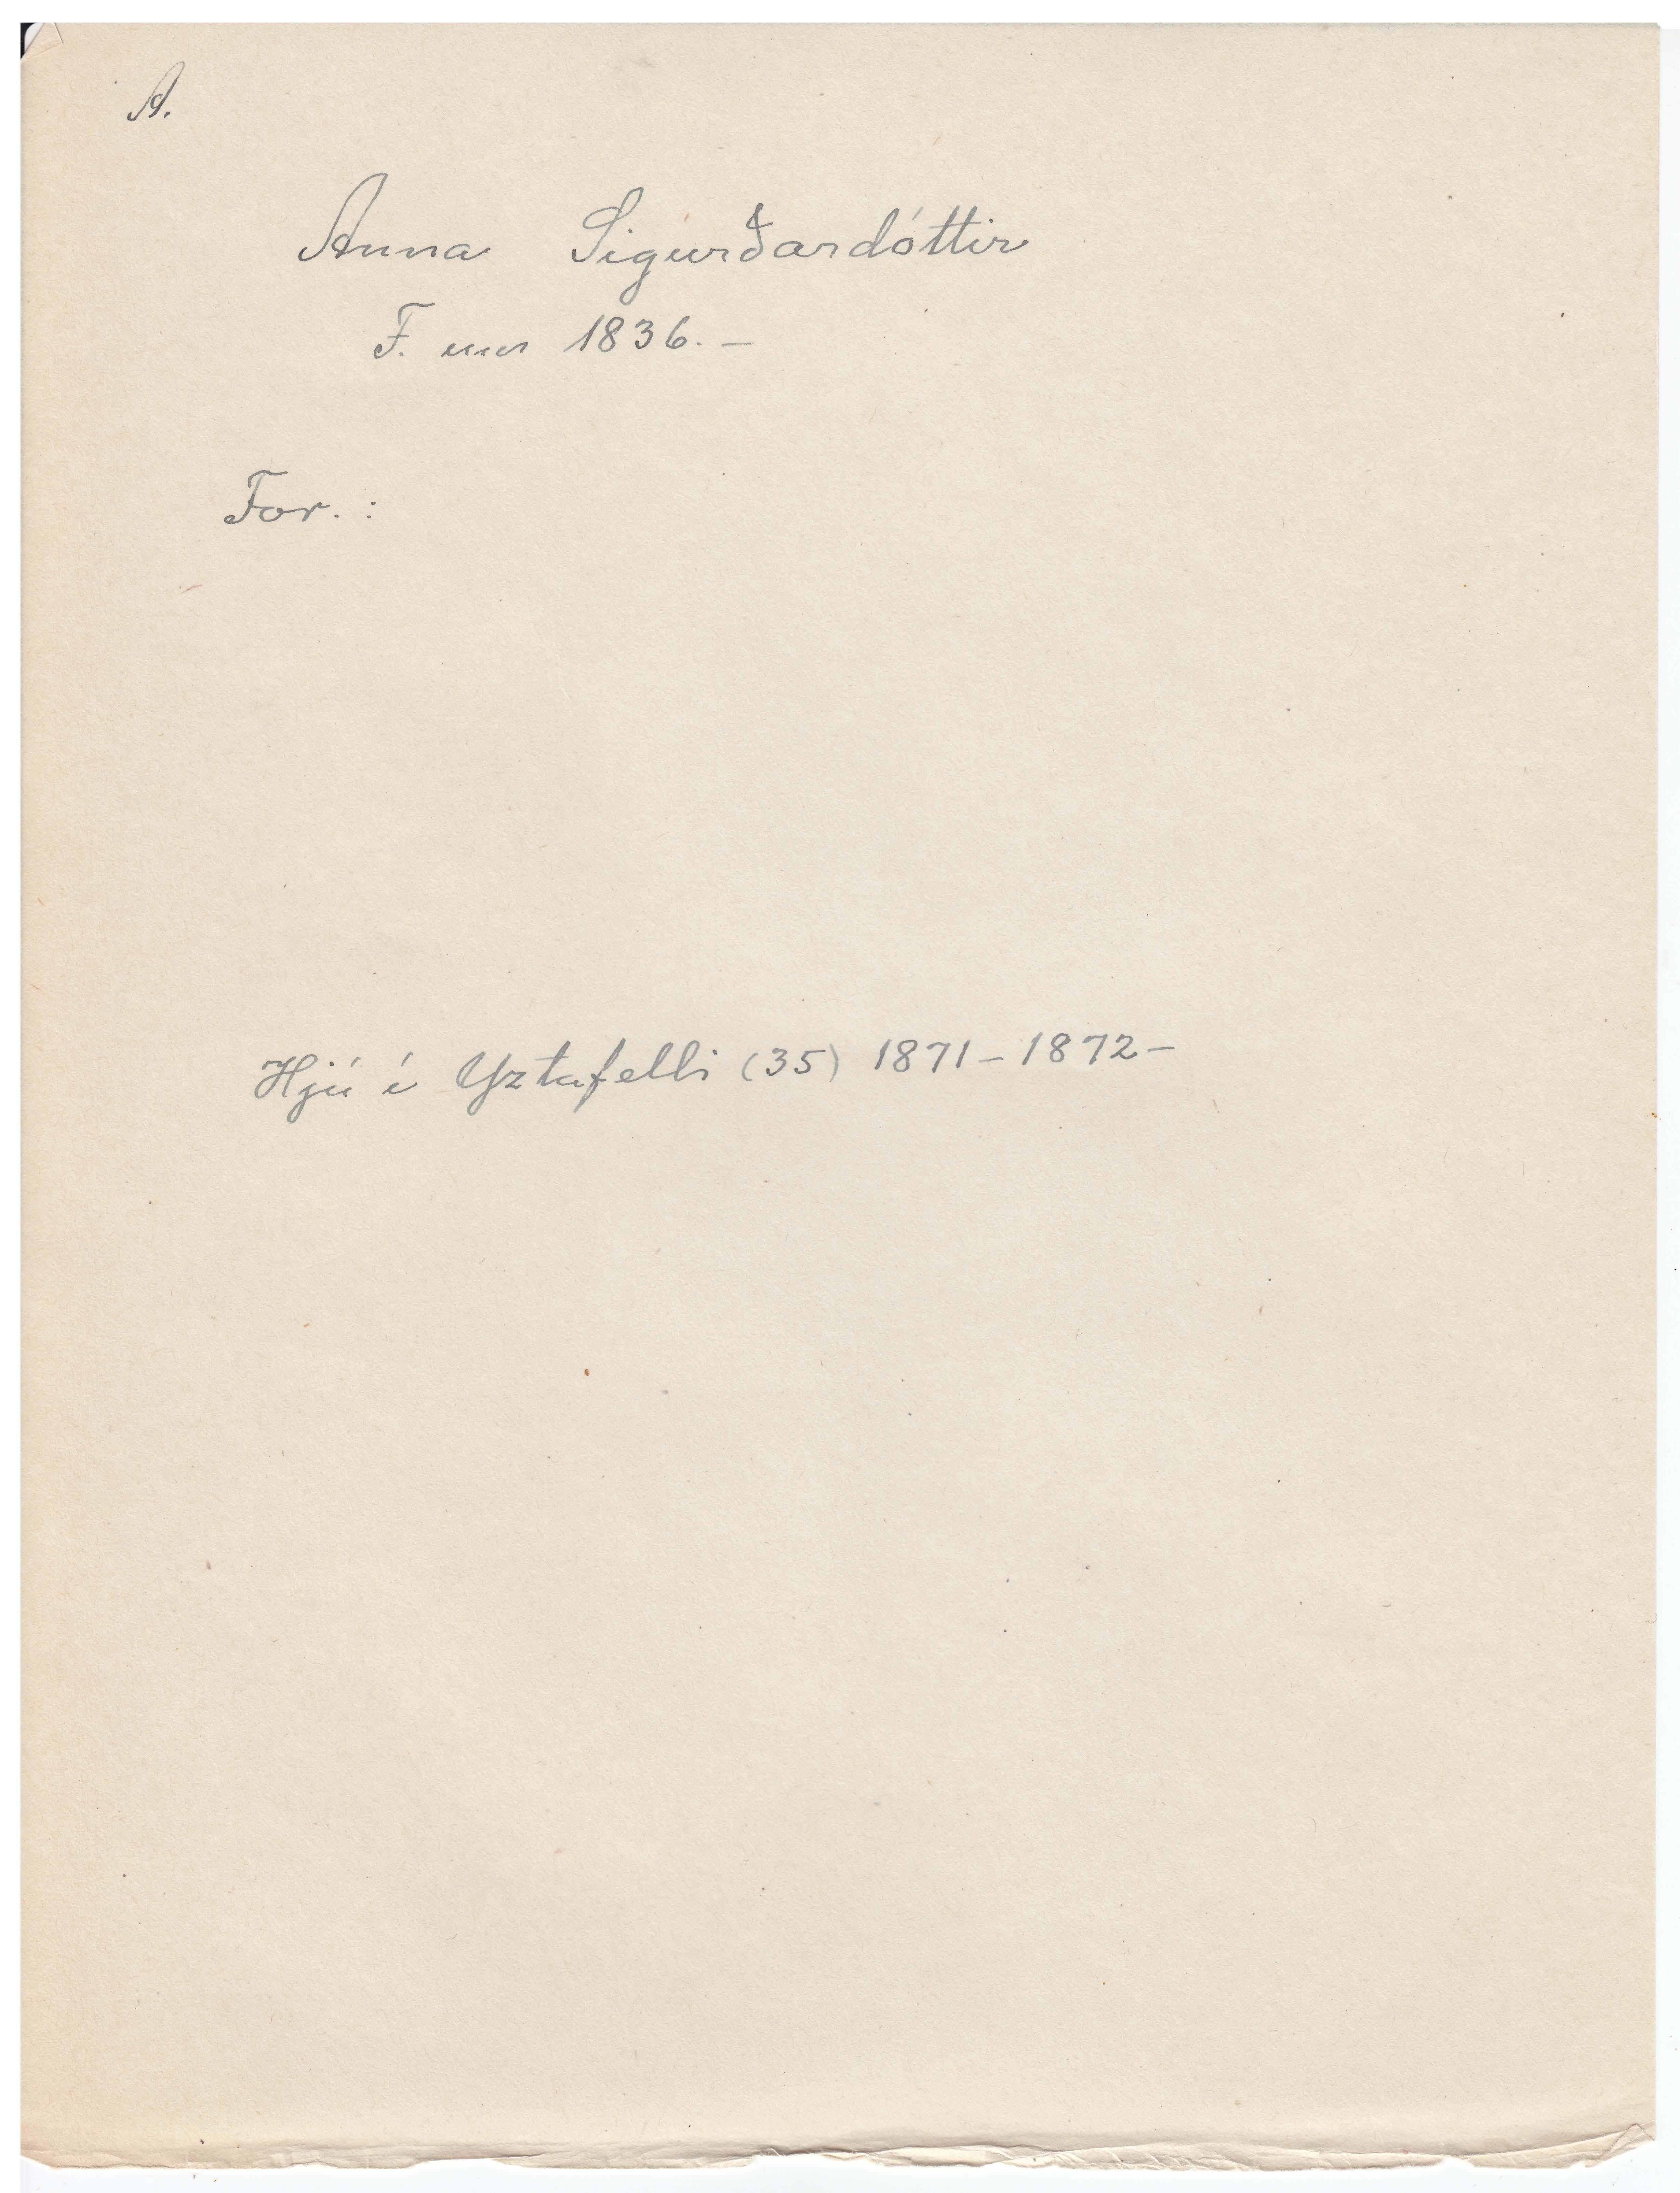 A.
Anna Sigurðardóttir
F. um 1836. –
For. :
Hjú í Yztafelli (35) 1871 – 1872 –